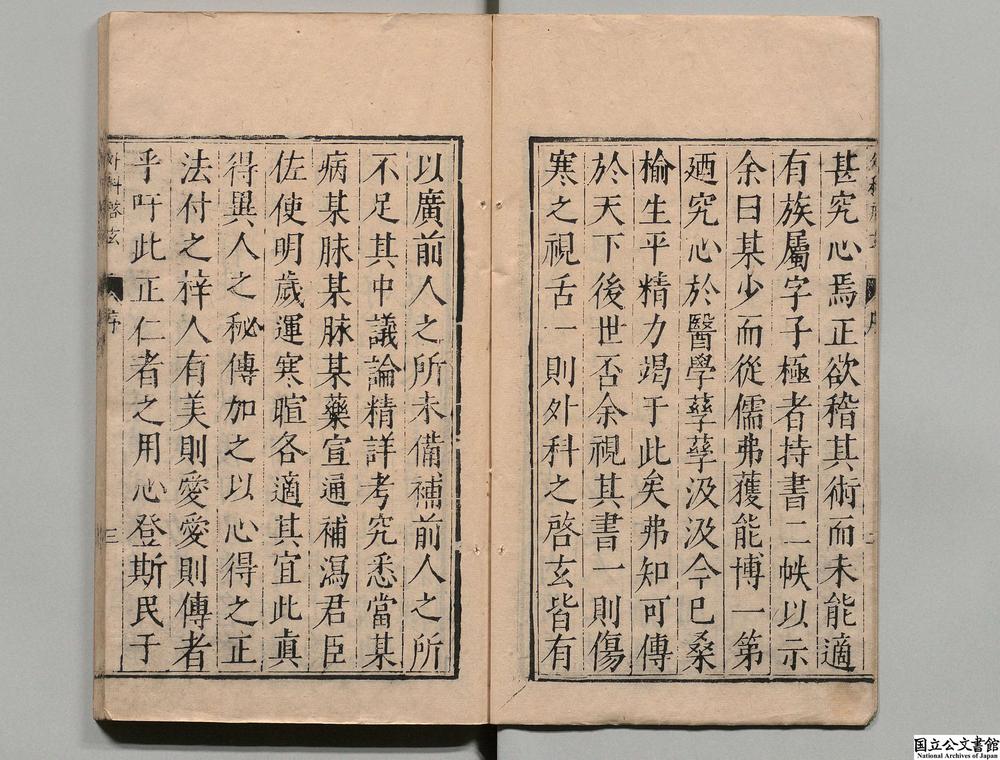 甚究心焉正欲稽其術而未能適
有族屬字子極者持書二帙以示
余曰某少而從儒弗獲能博一第
廼究心於醫學孳孳汲汲今已桑
榆生平精力竭于此矣弗知可傳
於天下後世否余視其書一則傷
寒之視舌一則外科之啓玄皆有
以廣前人之所未備補前人之所
不足其中議論精詳考究悉當某
病某脉某脉某藥宣通補瀉君臣
佐使明歲運寒暄各適其宜此真
得異人之秘傳加之以心得之正
法付之梓人有美則愛愛則傳者
乎吁此正仁者之用心登斯民于
外科啓玄
序
三
国立公文書館
National Archives of Japan